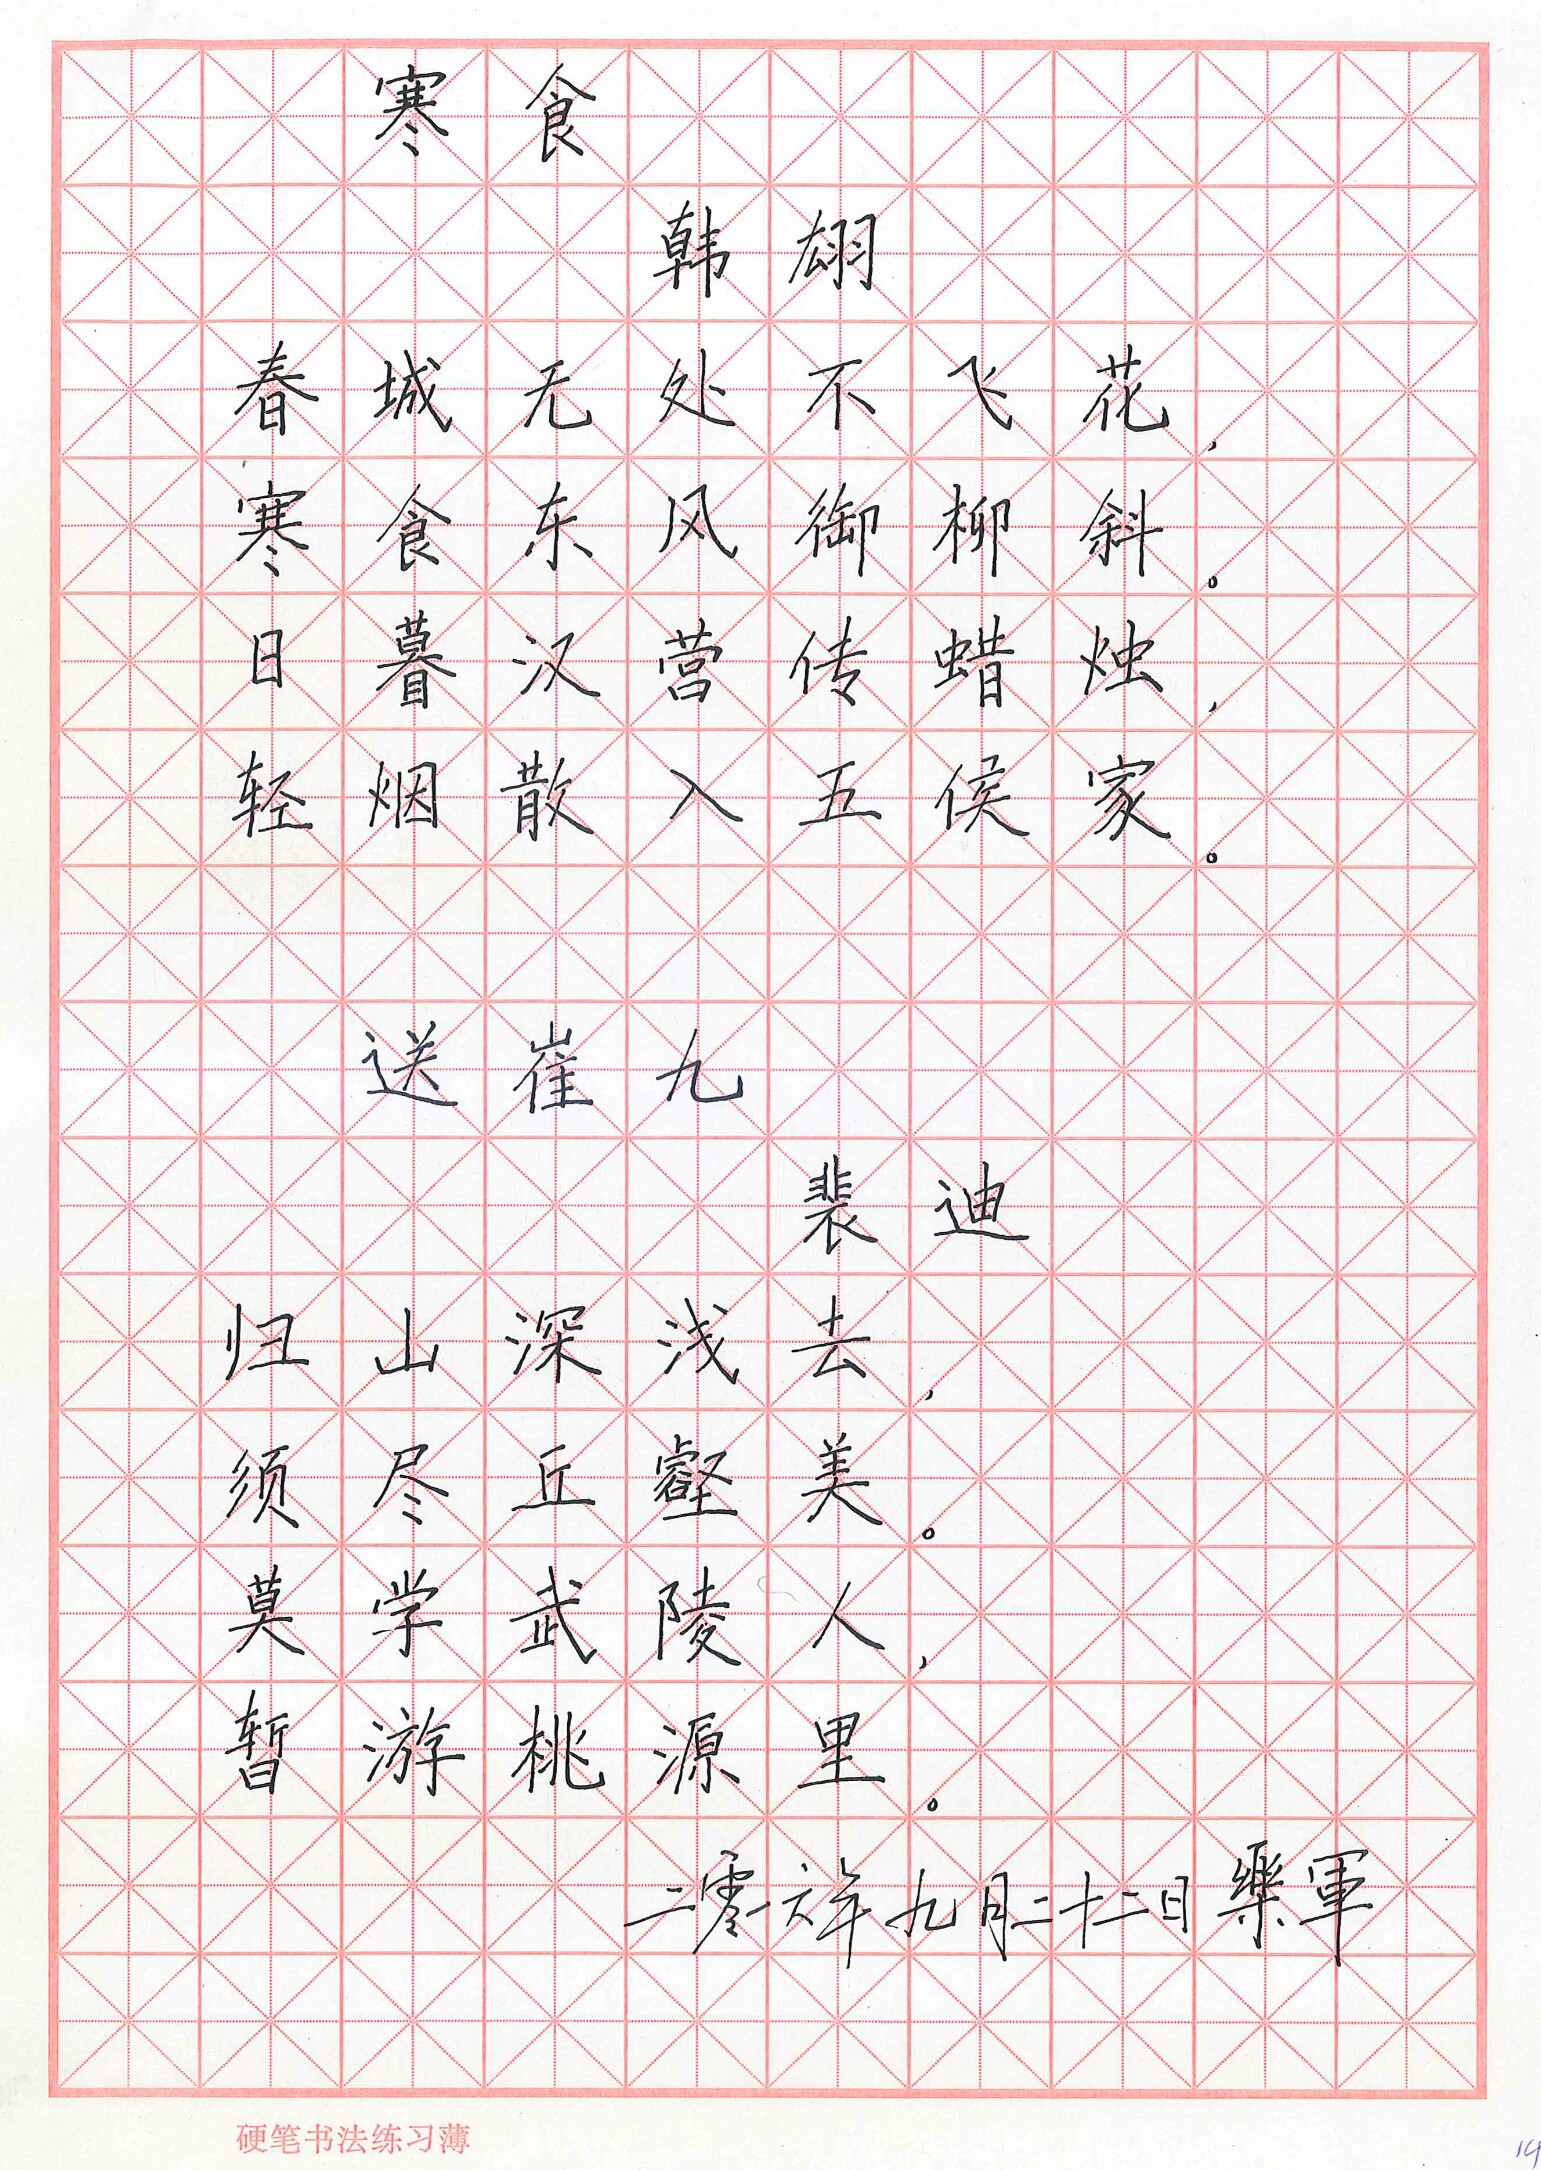 寒食
韩翃
春城无处不飞花，
寒食东风御柳斜。
日暮汉营传蜡烛，
轻烟散入五侯家。
送崔九
裴迪
归山深浅去，
须尽丘壑美。
莫学武陵人，
暂游桃源里。
二零一六年九月二十二日樂軍
硬笔书法练习薄
14